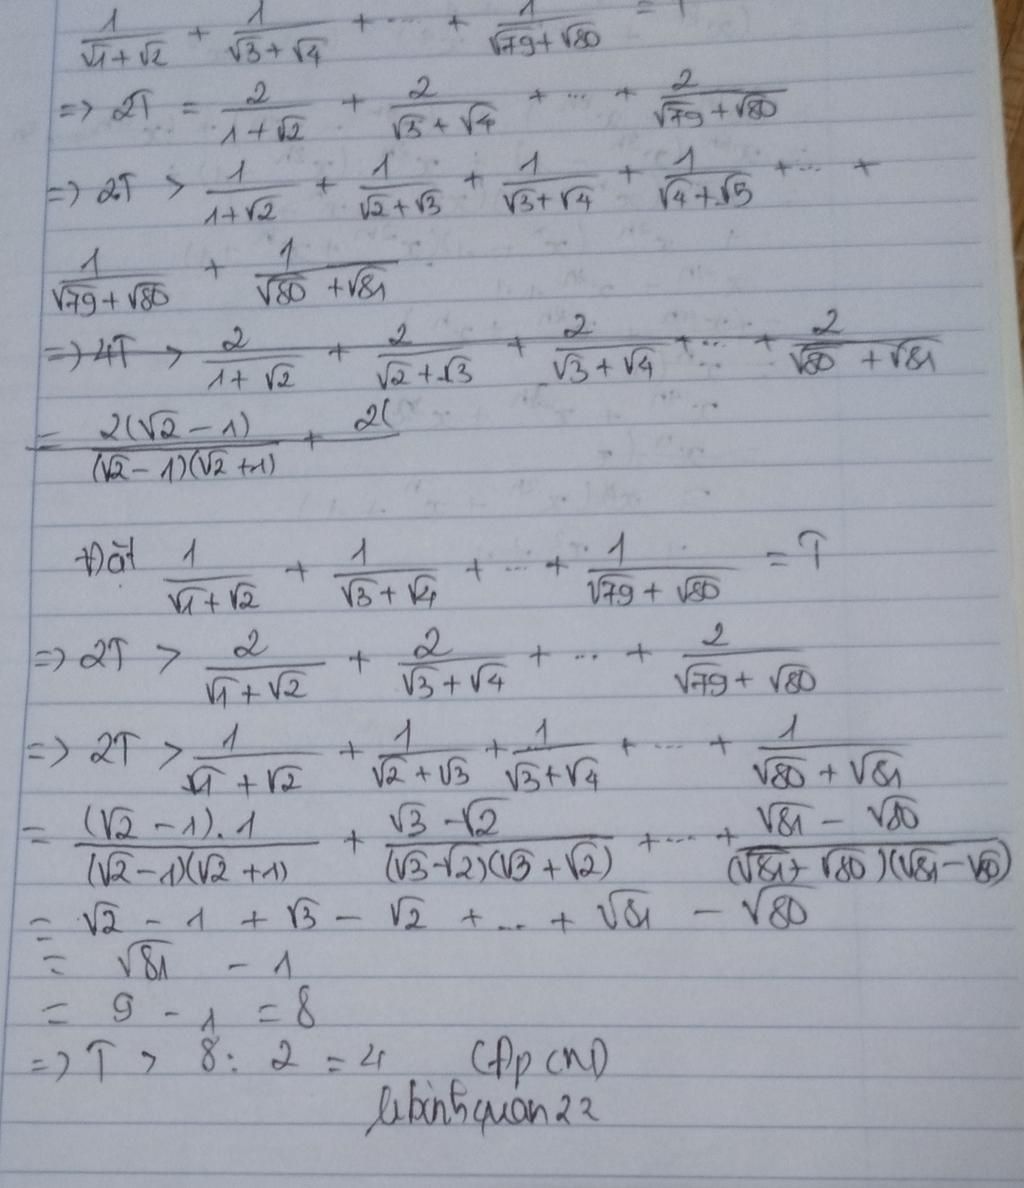 1/(√1+√2) + 1/(√3+√4) + ... + 1/(√79+√80) = T
=> 2T = 2/(1+√2) + 2/(√3+√4) + ... + 2/(√79+√80)
=> 2T > 1/(1+√2) + 1/(√2+√3) + 1/(√3+√4) + 1/(√4+√5) + ... +
1/(√79+√80) + 1/(√80+√81)
=> 4T > 2/(1+√2) + 2/(√2+√3) + 2/(√3+√4) + ... + 2/(√80+√81)
= 2(√2-1)/((√2-1)(√2+1)) + 2(
Đặt 1/(√1+√2) + 1/(√3+√4) + ... + 1/(√79+√80) = T
=> 2T > 2/(√1+√2) + 2/(√3+√4) + ... + 2/(√79+√80)
=> 2T > 1/(√1+√2) + 1/(√2+√3) + 1/(√3+√4) + ... + 1/(√80+√81)
= (√2-1).1/((√2-1)(√2+1)) + (√3-√2)/((√3-√2)(√3+√2)) + ... + (√81-√80)/((√81+√80)(√81-√80))
= √2 - 1 + √3 - √2 + ... + √81 - √80
= √81 - 1
= 9 - 1 = 8
=> T > 8 : 2 = 4 (đpcm)
lebinhquan22